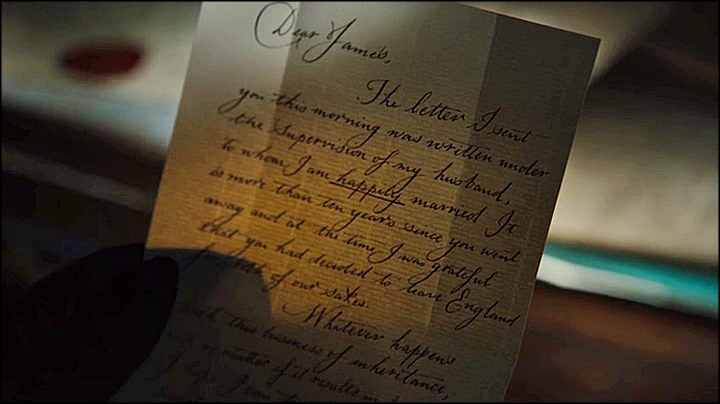 Dear James,
The letter I sent
you this morning was written under
the supervision of my husband,
to whom I am happily married It
is more than ten years since you went
away and at the time I was grateful
that you had decided to leave England
for both of our sakes.
Whatever happens
with this business of inheritance,
no matter if it results